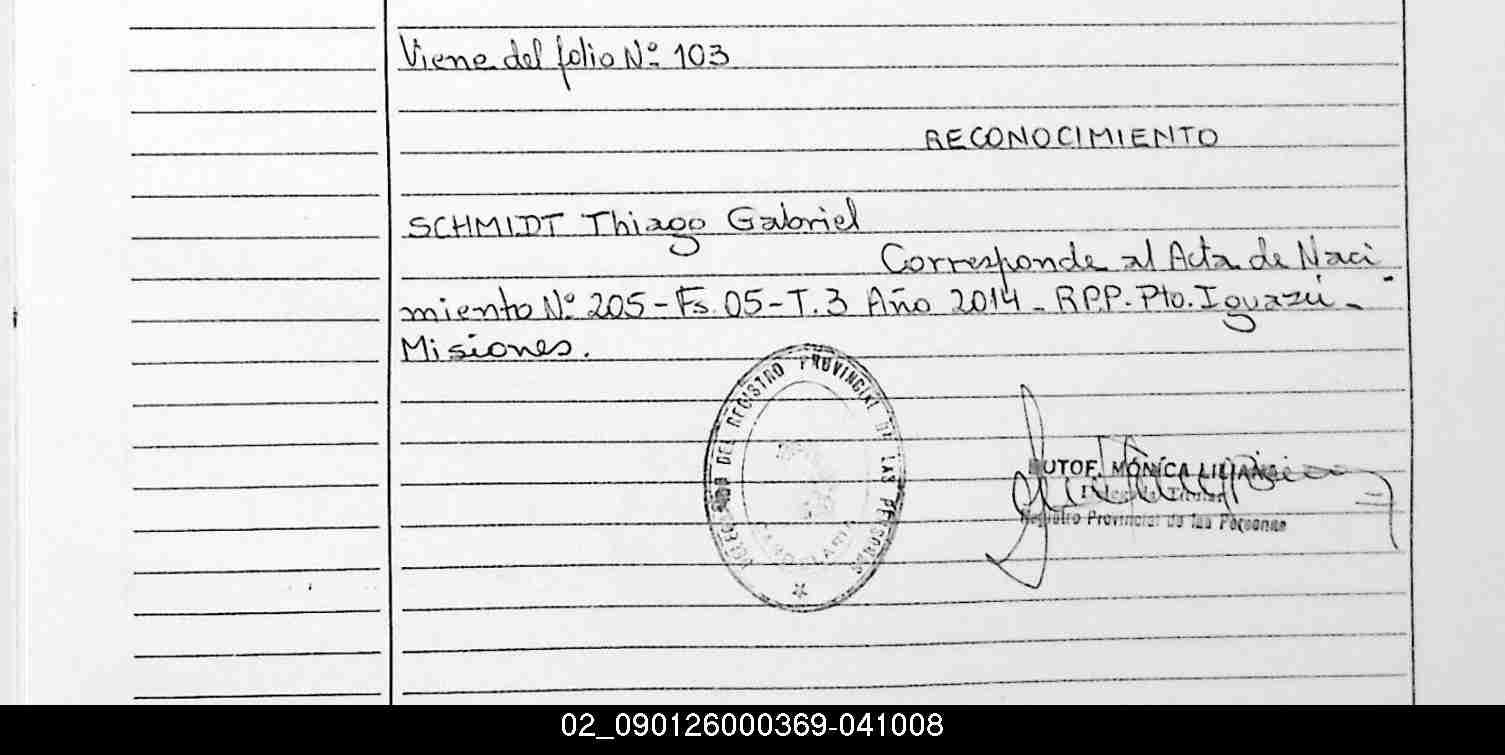 Viene del folio Nº 103
RECONOCIMIENTO
SCHMIDT Thiago Gabriel
Corresponde al Acta de Naci
miento Nº 205 - Fs. 05 - T. 3 Año 2014 - RPP. Pto. Iguazú -
Misiones.
DEL REGISTRO PROVINCIAL DE LAS PERSONAS
MÓNICA LILIANA
Registro Provincial de las Personas
02_090126000369-041008